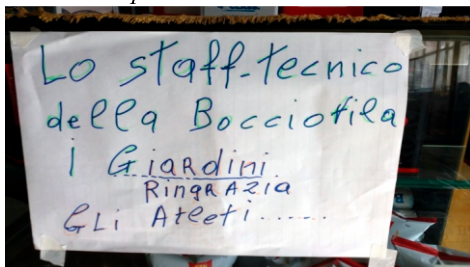 Lo staff-tecnico
della Bocciofila
i Giardini
RINGRAZIA
GLi Atleti......